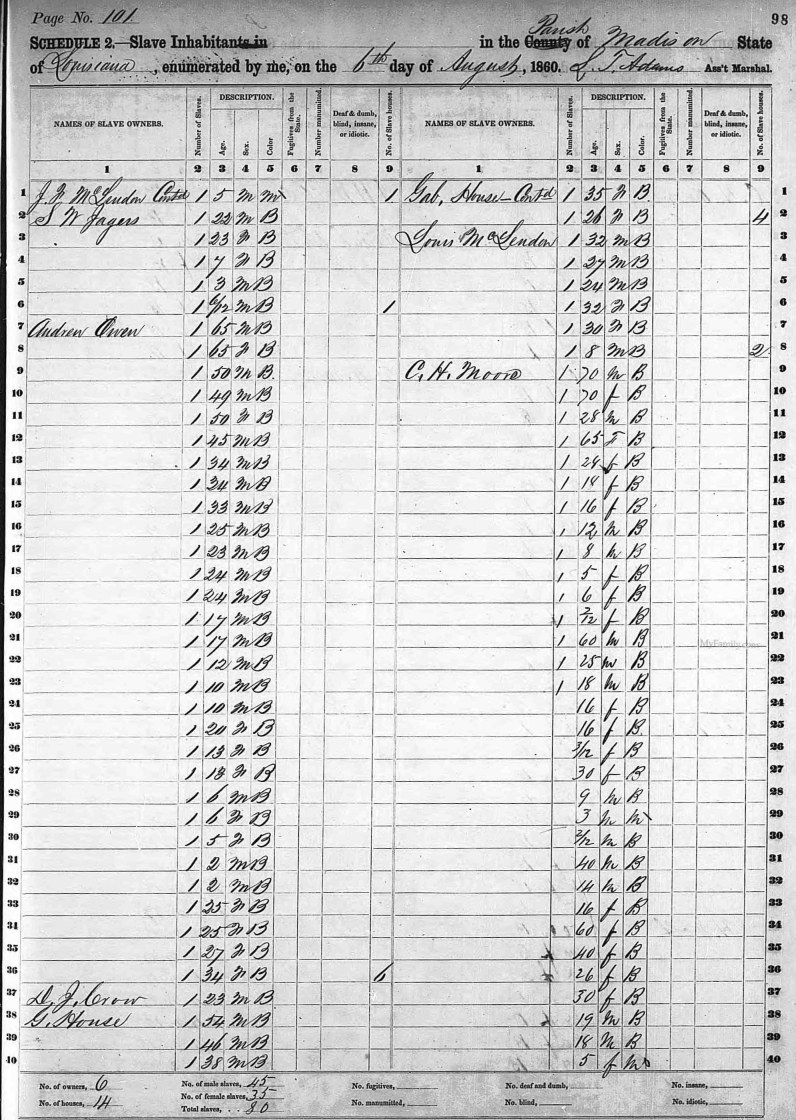 Page No. 101
98
SCHEDULE 2.—Slave Inhabitants in in the County Parish of Madison State
of Louisiana, enumerated by me, on the 6th day of August, 1860. L. T. Adams Ass't Marshal.
NAMES OF SLAVE OWNERS. Number of Slaves. DESCRIPTION. Age. Sex. Color Fugitives from the State. Number manumitted. Deaf & dumb, blind, insane, or idiotic. No. of Slave houses. NAMES OF SLAVE OWNERS. Number of Slaves. DESCRIPTION. Age. Sex. Color. Fugitives from the State. Number manumitted. Deaf & dumb, blind, insane, or idiotic. No. of Slave houses.
1 2 3 4 5 6 7 8 9 1 2 3 4 5 6 7 8 9
1 J. F. McLendon Contd 1 5 m m 1 Gab, House Contd 1 35 F B 1
2 S W Jagers 1 22 m B 1 26 F B 4 2
3 1 23 F B Louis McLendon 1 32 m B 3
4 1 7 F B 1 27 m B 4
5 1 3 m B 1 24 m B 5
6 1 6/12 m B 1 1 32 F B 6
7 Andrew Owen 1 65 m B 1 30 F B 7
8 1 65 F B 1 8 m B 2 8
9 1 50 m B C. H. Moore 1 70 m B 9
10 1 49 m B 1 70 f B 10
11 1 50 F B 1 28 m B 11
12 1 45 m B 1 65 F B 12
13 1 34 m B 1 28 f B 13
14 1 34 m B 1 18 f B 14
15 1 33 m B 1 16 f B 15
16 1 25 m B 1 12 m B 16
17 1 23 m B 1 8 m B 17
18 1 24 m B 1 5 f B 18
19 1 24 m B 1 6 f B 19
20 1 17 m B 1 2/12 f B 20
21 1 17 m B 1 60 m B 21
22 1 12 m B 1 25 m B 22
23 1 10 m B 1 18 m B 23
24 1 10 m B 16 f B 24
25 1 20 F B 16 f B 25
26 1 13 F B 3/12 f B 26
27 1 13 F B 30 f B 27
28 1 6 m B 9 m B 28
29 1 6 F B 3 m m 29
30 1 5 F B 2/12 m B 30
31 1 2 m B 40 m B 31
32 1 2 m B 14 m B 32
33 1 25 F B 16 f B 33
34 1 25 F B 60 f B 34
35 1 27 F B 40 f B 35
36 1 34 F B 6 26 f B 36
37 D. J. Crow 1 23 m B 30 f B 37
38 G. House 1 54 m B 19 m B 38
39 1 46 m B 18 m B 39
40 1 38 m B 5 f m 40
MyFamily.com
No. of owners, 6 No. of male slaves, 45 No. fugitives, No. deaf and dumb, No. insane,
No. of houses, 14 No. of female slaves, 35 No. manumitted, No. blind, No. idiotic,
Total slaves, 80